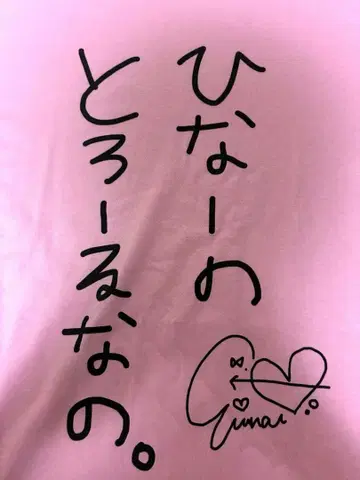 ひなーの
とろーるなの。